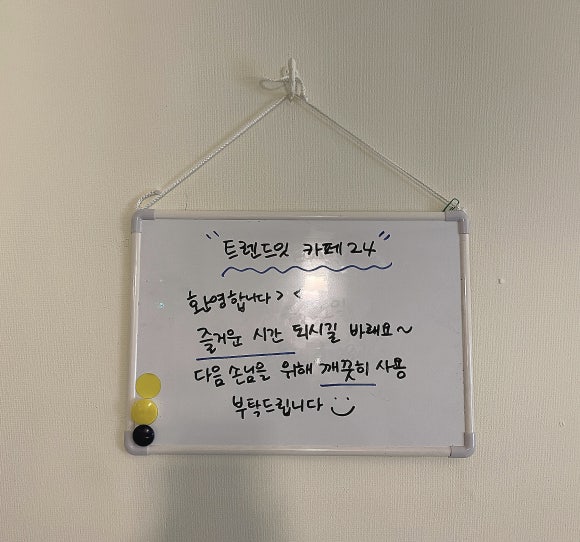 "트렌드잇 카페24"
환영합니다 > <
즐거운 시간 되시길 바래요~
다음 손님을 위해 깨끗히 사용
부탁드립니다